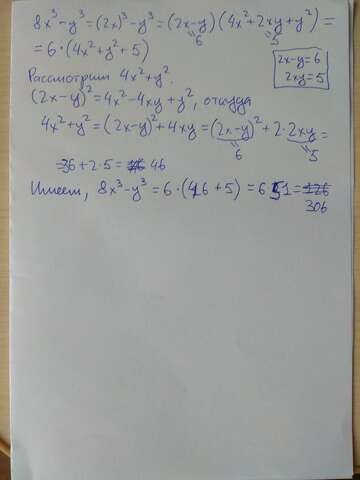 8x³-y³=(2x)³-y³=(2x-y)(4x²+2xy+y²)=
6 5
=6·(4x²+y²+5)
2x-y=6
2xy=5
Рассмотрим 4x²+y².
(2x-y)²=4x²-4xy+y², откуда
4x²+y²=(2x-y)²+4xy=(2x-y)²+2·2xy=
6 5
=36+2·5= 46
Имеем, 8x³-y³=6·(46+5)=6·51=126
306